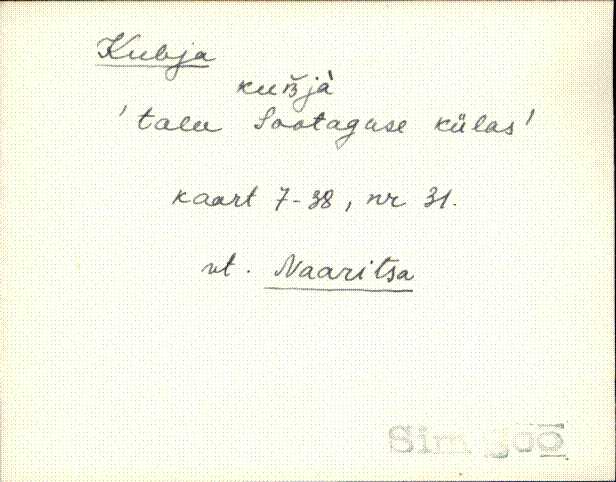 Kubja
kuʙjà
'talu Sootaguse külas'
kaart 7-38, nr 31.
vt. Naaritsa
Sim